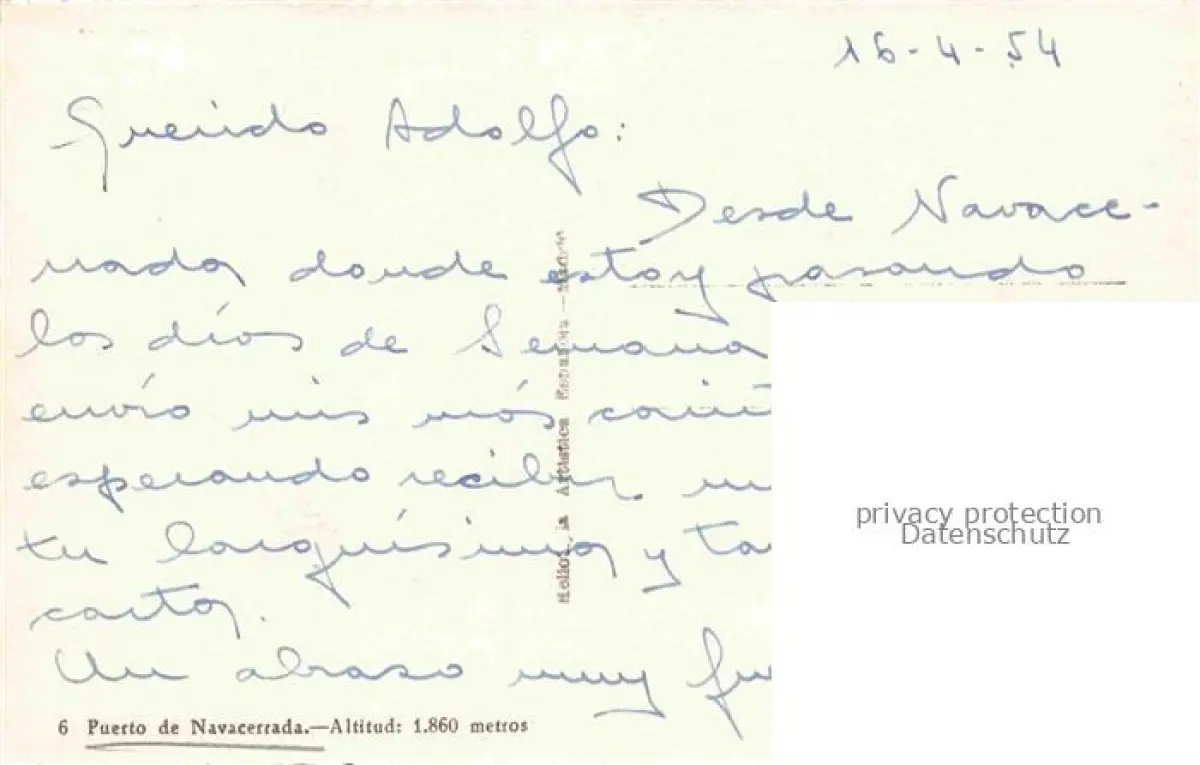 16-4-54
Querido Adolfo:
Desde Navace-
rrada donde estoy pasando
los días de Semana
envío mis más cariñ
esperando recibir
tu larguísima y ta
carta.
Un abraso muy fu
6 Puerto de Navacerrada.—Altitud: 1.860 metros
Artística Española — Madrid
privacy protection
Datenschutz